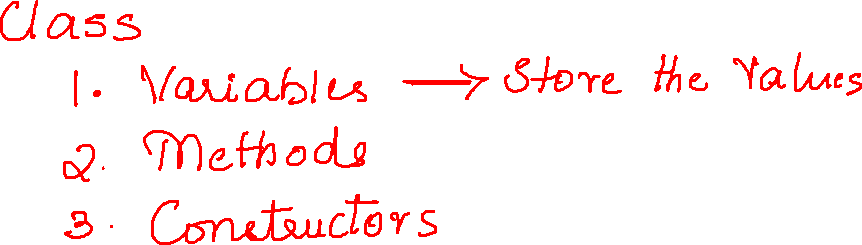 Class
1. Variables → Store the Values
2. Methods
3. Constructors